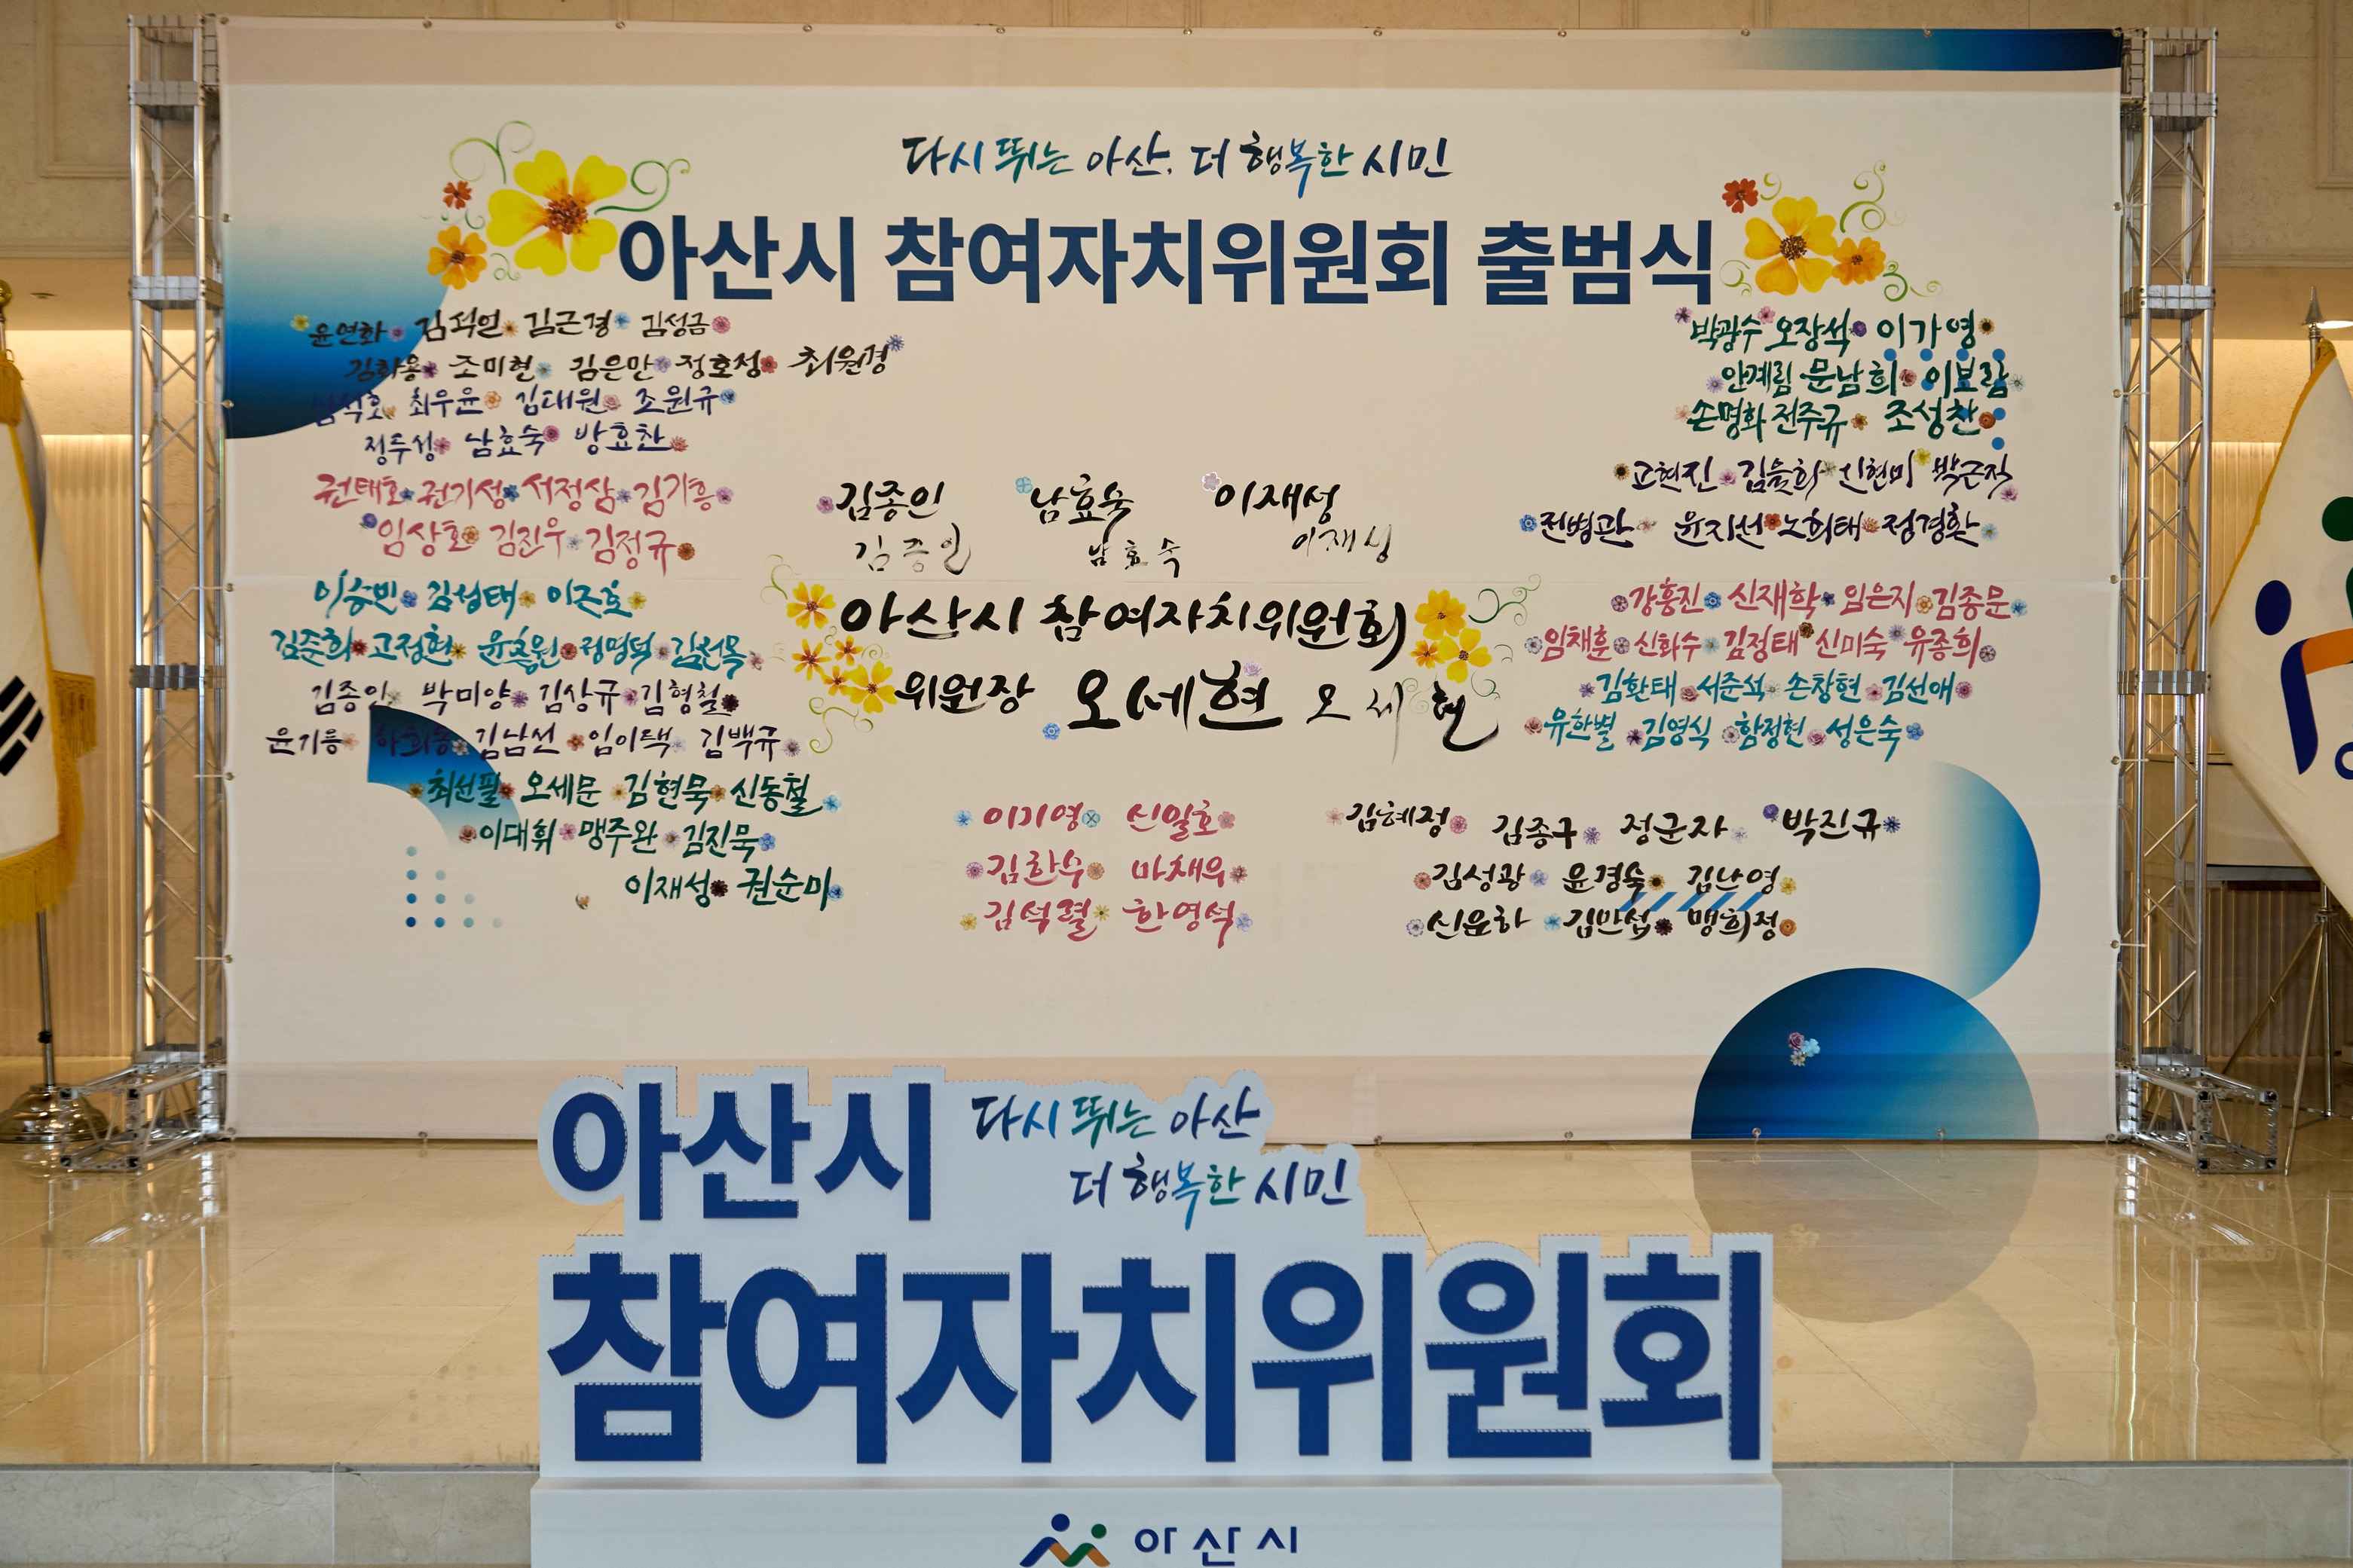 다시 뛰는 아산, 더 행복한 시민
아산시 참여자치위원회 출범식
윤연화 김석일 김근경 김성금
김하용 조미현 김은만 정호정 최원경
최우윤 김대원 조원규
정두성 남효숙 방효찬
권태호 권기성 서정삼 김기흥
임상호 김진우 김정규
이승빈 김성태 이근호
김준희 고정현 윤홍원 정명덕 김선옥
김종인 박미양 김상규 김형철
윤기름 하희용 김남선 임이택 김백규
최선필 오세문 김현묵 신동철
이대휘 맹주완 김진묵
이재성 권순미
김종인 남효숙 이재성
김종인 남효숙 이재성
아산시 참여자치위원회
위원장 오세현 오세현
이기영 신일호
김한수 마채우
김석렬 한영석
박광수 오장석 이가영
안계림 문남희 이보람
손명화 전주규 조성찬
고현진 김을희 신현미 박근직
전병관 윤지선 노희태 정경환
강흥진 신재학 임은지 김종문
임채훈 신화수 김정태 신미숙 유종희
김환태 서준석 손창현 김선애
유한별 김영식 함정현 성은숙
김혜정 김종구 정군자 박진규
김성광 윤경숙 김난영
신윤하 김만섭 맹희정
아산시 다시 뛰는 아산
더 행복한 시민
참여자치위원회
아산시